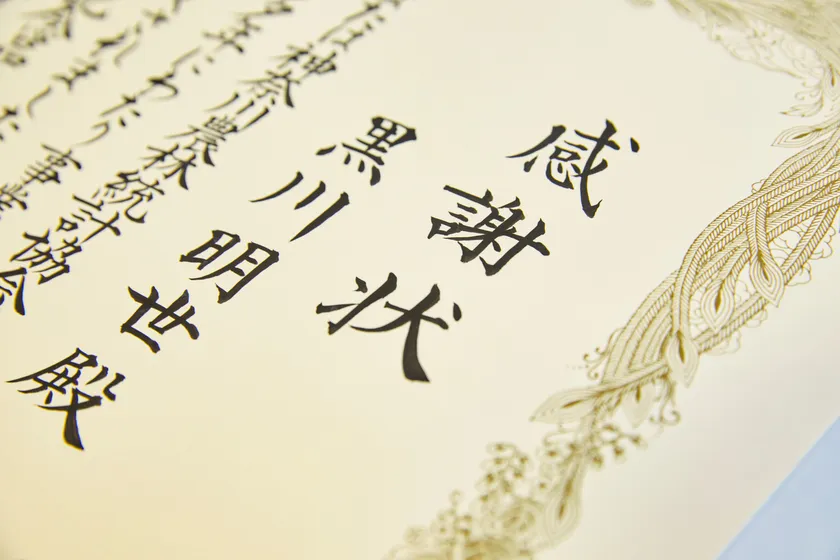 感謝状
黒川明世殿
たは神奈川農林統計協会
多年にわたり事業
されました